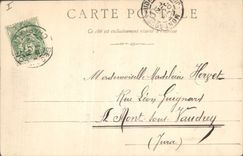 I
CARTE POSTALE
Ce côté est exclusivement réservé à l'adresse
Mademoiselle Madeleine Horget
Rue Léon Guignard
à Mont sous Vaudrey
(Jura)